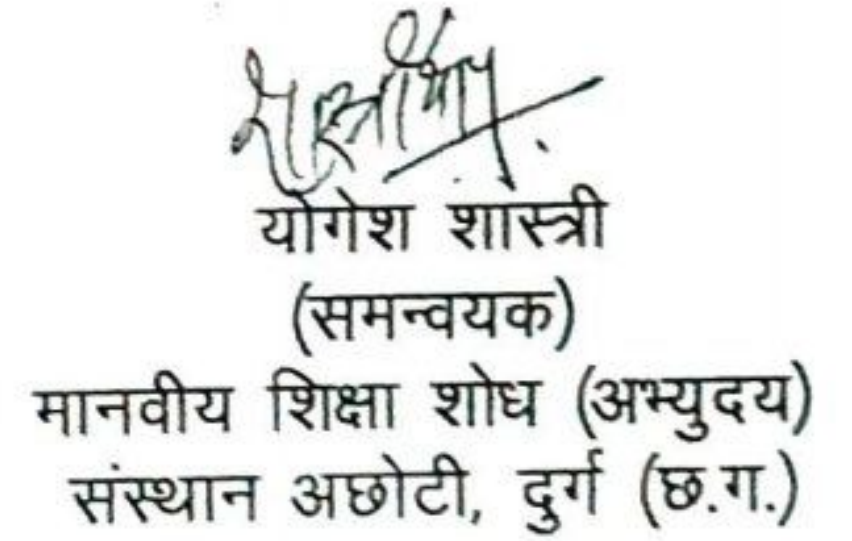 योगेश शास्त्री
(समन्वयक)
मानवीय शिक्षा शोध (अभ्युदय)
संस्थान अछोटी, दुर्ग (छ.ग.)